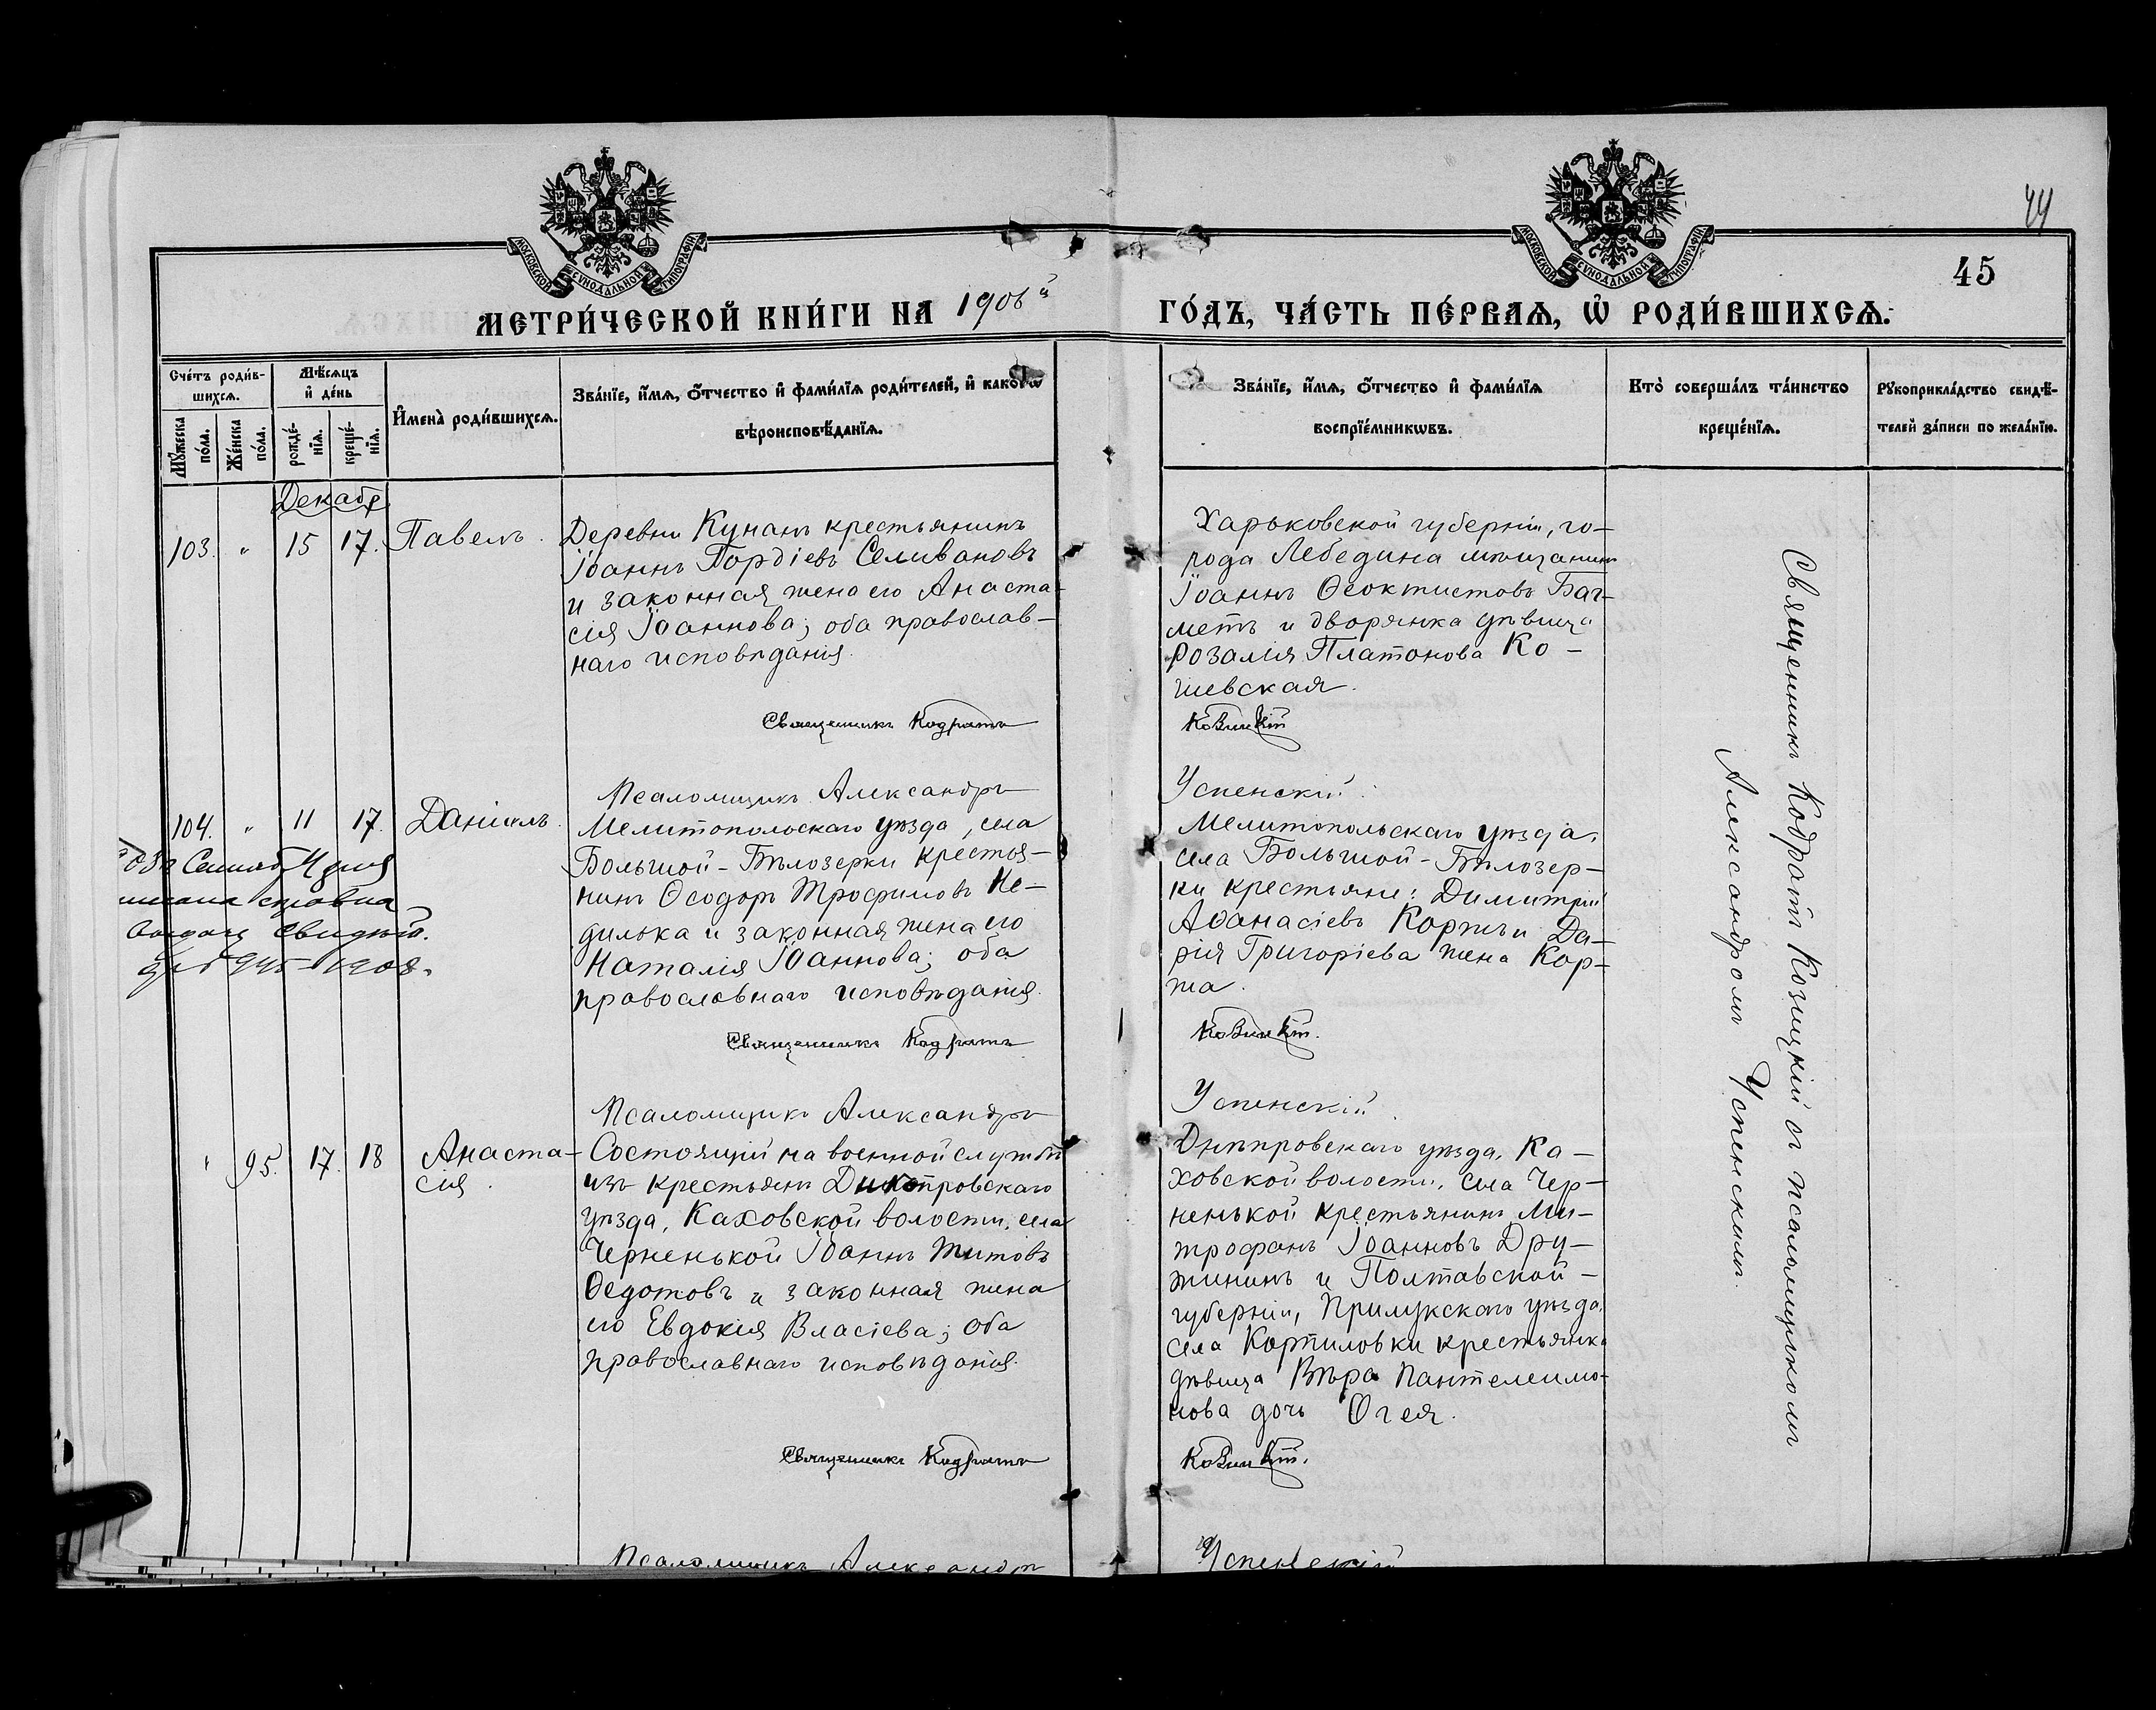 МОСКОВСКОЙ СѴНОДАЛЬНОЙ ТИПОГРАФІИ
МОСКОВСКОЙ СѴНОДАЛЬНОЙ ТИПОГРАФІИ
44
45
МЕТРИ́ЧЕСКОЙ КНИ́ГИ НА 1906й
ГО́ДЪ, ЧА́СТЬ ПЕ́РВАѦ, Ѡ҆ РОДИ́ВШИХСѦ.
Сче́тъ роди́в-
шихсѧ.
Мꙋ́жеска
по́ла.
Же́нска
по́ла.
Мѣ́сѧцъ
и҆ де́нь
рожде́-
нїѧ.
креще́-
нїѧ.
И҆мена̀ роди́вшихсѧ.
Зва́нїе, и҆́мѧ, ѻ҆́тчество и҆ фами́лїѧ роди́телей, и҆ како́гѡ
вѣроисповѣ́данїѧ.
Зва́нїе, и҆́мѧ, ѻ҆́тчество и҆ фами́лїѧ
воспрїе́мникѡвъ.
Кто̀ соверша́лъ та́инство
креще́нїѧ.
Рꙋкоприкла́дство свидѣ́-
телей за́писи по жела́нїю.
Декабр
103. " 15 17. Павелъ.
Деревни Кунанъ крестьянинъ
Іоаннъ Гордіевъ Селивановъ
и законная жена его Анаста-
сія Іоаннова; оба православ-
наго исповѣданія.
Священникъ Кодратъ
Псаломщикъ Александръ
Харьковской губерніи, го-
рода Лебедина мѣщанинъ
Іоаннъ Ѳеоктистовъ Баг-
метъ и дворянка дѣвица
Розалія Платонова Ко-
шевская.
Козицкій
Успенскій.
104. " 11 17. Даніилъ.
Мелитопольскаго уѣзда, села
Большой-Бѣлозерки крестья-
нинъ Ѳеодоръ Трофимовъ Не-
дилька и законная жена его
Наталія Іоаннова; оба
православнаго исповѣданія.
Священникъ Кодратъ
Псаломщикъ Александръ
1908.
Мелитопольскаго уѣзда,
села Большой-Бѣлозер-
ки крестьяне: Димитрій
Аѳанасіевъ Коржъ и Да-
рія Григоріева жена Кор-
жа.
Козицкій.
Успенскій.
" 95. 17. 18 Анаста-
сія.
Состоящій на военной службѣ
изъ крестьянъ Днѣпровскаго
уѣзда, Каховской волости, села
Черненькой Іоаннъ Титовъ
Ѳедотовъ и законная жена
его Евдокія Власіева; оба
православнаго исповѣданія.
Священникъ Кодратъ
Псаломщикъ Александръ
Днѣпровскаго уѣзда, Ка-
ховской волости, села Чер-
ненькой крестьянинъ Ми-
трофанъ Іоанновъ Дру-
жининъ и Полтавской-
губерніи, Прилукскаго уѣзда,
села Корниловки крестьянка
дѣвица Вѣра Пантелеимо-
нова дочь Огея.
Козицкій.
Успенскій
Священникъ Кодратъ Козицкій съ псаломщикомъ
Александромъ Успенскимъ.